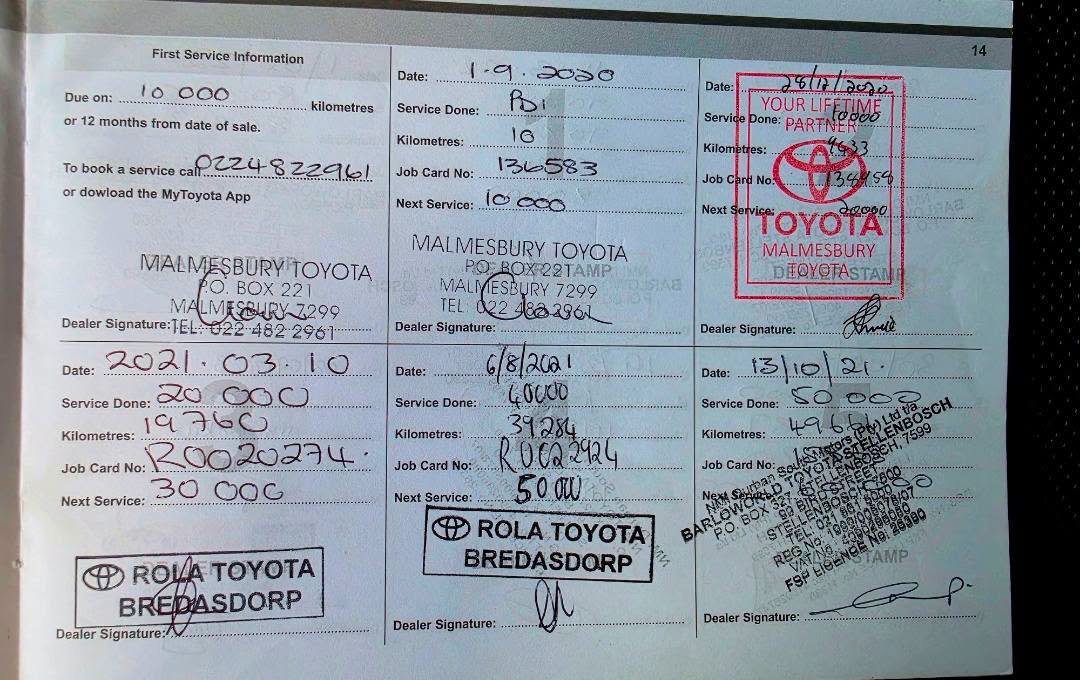 14
First Service Information
Due on: 10 000 kilometres
or 12 months from date of sale.
To book a service call 0224822961
or dowload the MyToyota App
MALMESBURY TOYOTA
P.O. BOX 221
MALMESBURY 7299
Dealer Signature: TEL: 022 482 2961
Date: 1.9.2020
Service Done: PDi
Kilometres: 10
Job Card No: 136583
Next Service: 10 000
MALMESBURY TOYOTA
P.O. BOX 221
MALMESBURY 7299
TEL: 022 482 2961
Dealer Signature:
Date: 28/12/2020
YOUR LIFETIME
Service Done: 10000
PARTNER
Kilometres: 9633
Job Card No: 138458
Next Service: 20000
TOYOTA
MALMESBURY
TOYOTA
Dealer Signature:
Date: 2021.03.10
Service Done: 20 000
Kilometres: 19760
Job Card No: R0020274.
Next Service: 30 000
ROLA TOYOTA
BREDASDORP
Dealer Signature:
Date: 6/8/2021
Service Done: 40000
Kilometres: 39284
Job Card No: R0022924
Next Service: 50 000
ROLA TOYOTA
BREDASDORP
Dealer Signature:
Date: 13/10/21.
Service Done: 50 000
Kilometres:
Job Card No:
Next Service:
BARLOWORLD TOYOTA STELLENBOSCH
STELLENBOSCH, 7599
Dealer Signature: